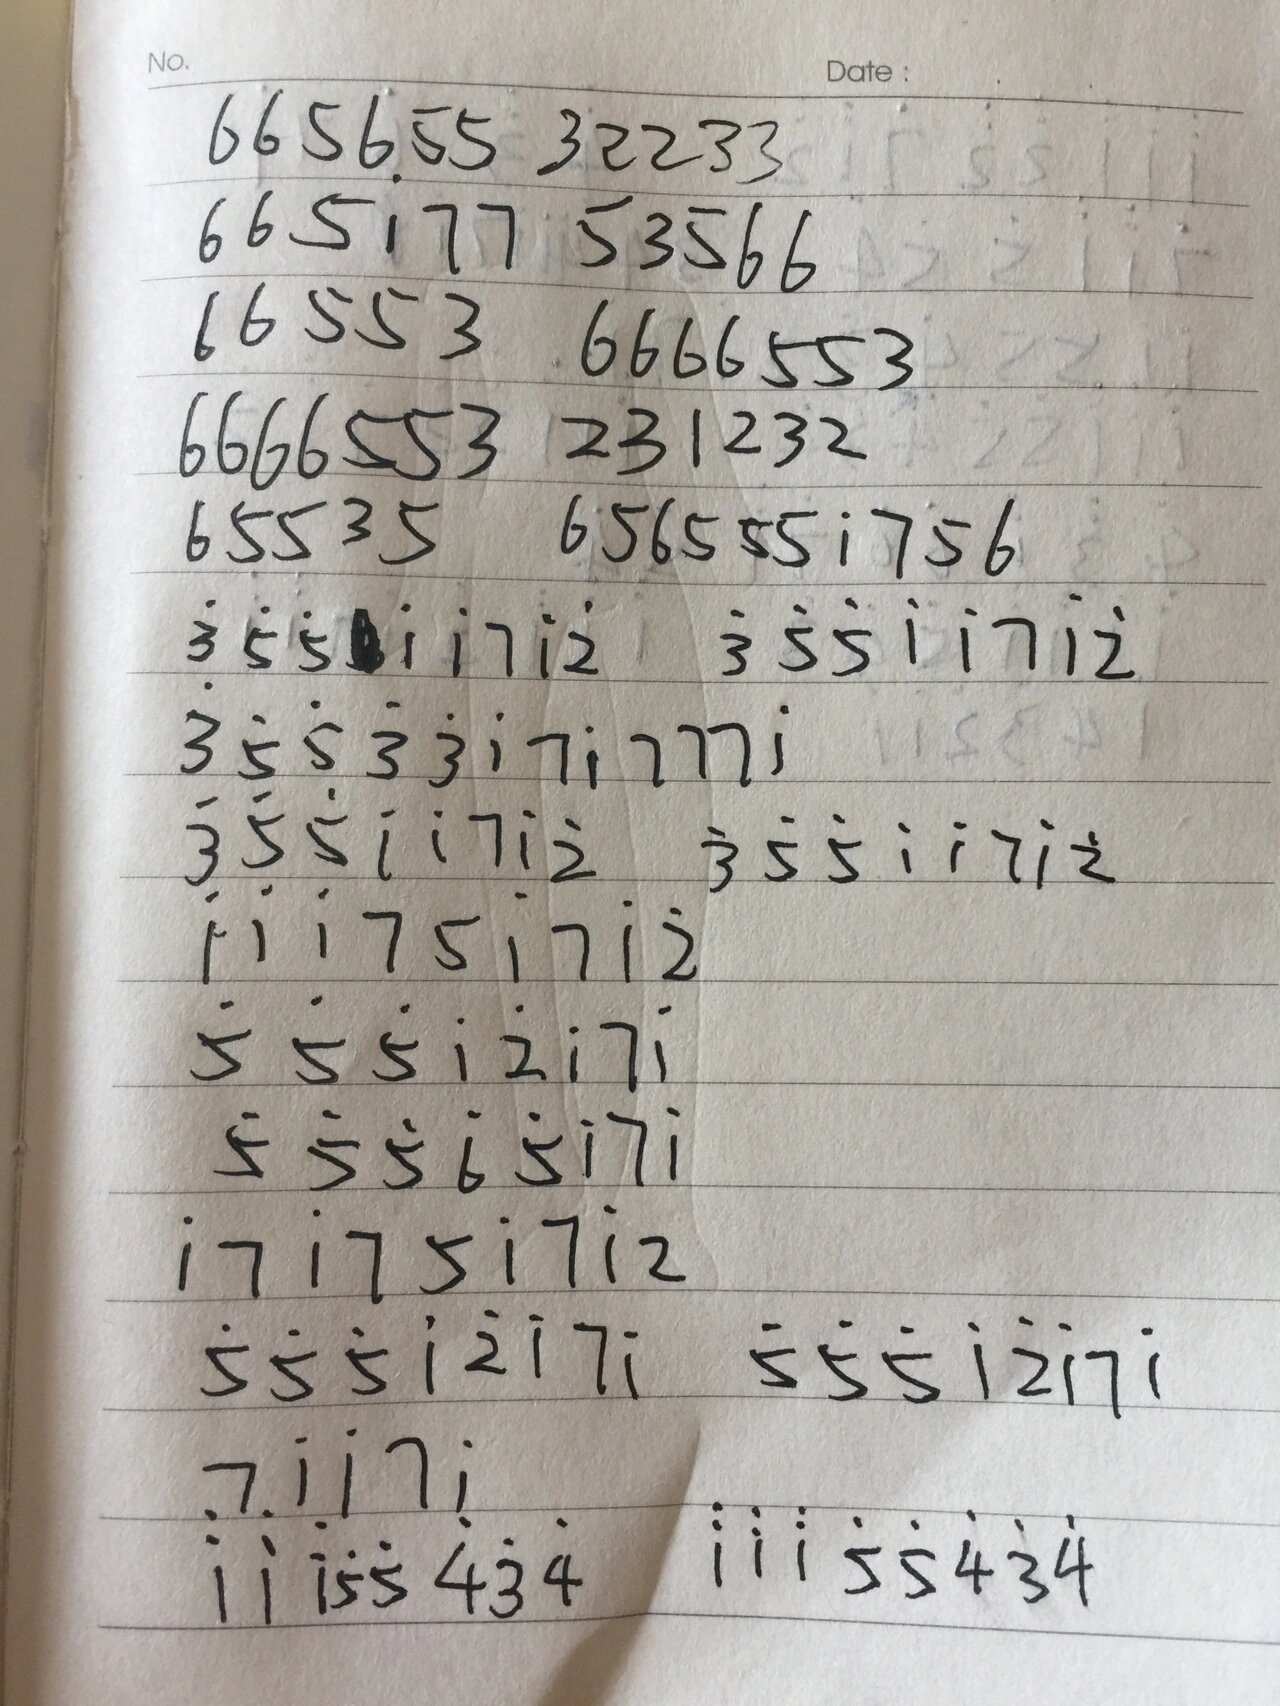 No. Date :
665655 32233
665i77 53566
66553 6666553
6666553 231232
65535 6565551̇756
3̇5̇5̇ 1̇1̇71̇2̇ 3̇5̇5̇1̇1̇71̇2̇
3̇5̇5̇3̇3̇1̇71̇7771̇
3̇5̇5̇1̇1̇71̇2̇ 3̇5̇5̇1̇1̇71̇2̇
1̇1̇1̇751̇71̇2̇
5̇5̇5̇1̇2̇1̇71̇
5̇5̇5̇6̇5̇1̇71̇
1̇71̇751̇71̇2
5̇5̇5̇1̇2̇1̇71̇ 5̇5̇5̇1̇2̇1̇71̇
71̇1̇71̇
1̇1̇1̇5̇5̇4̇3̇4̇ 1̇1̇1̇5̇5̇4̇3̇4̇